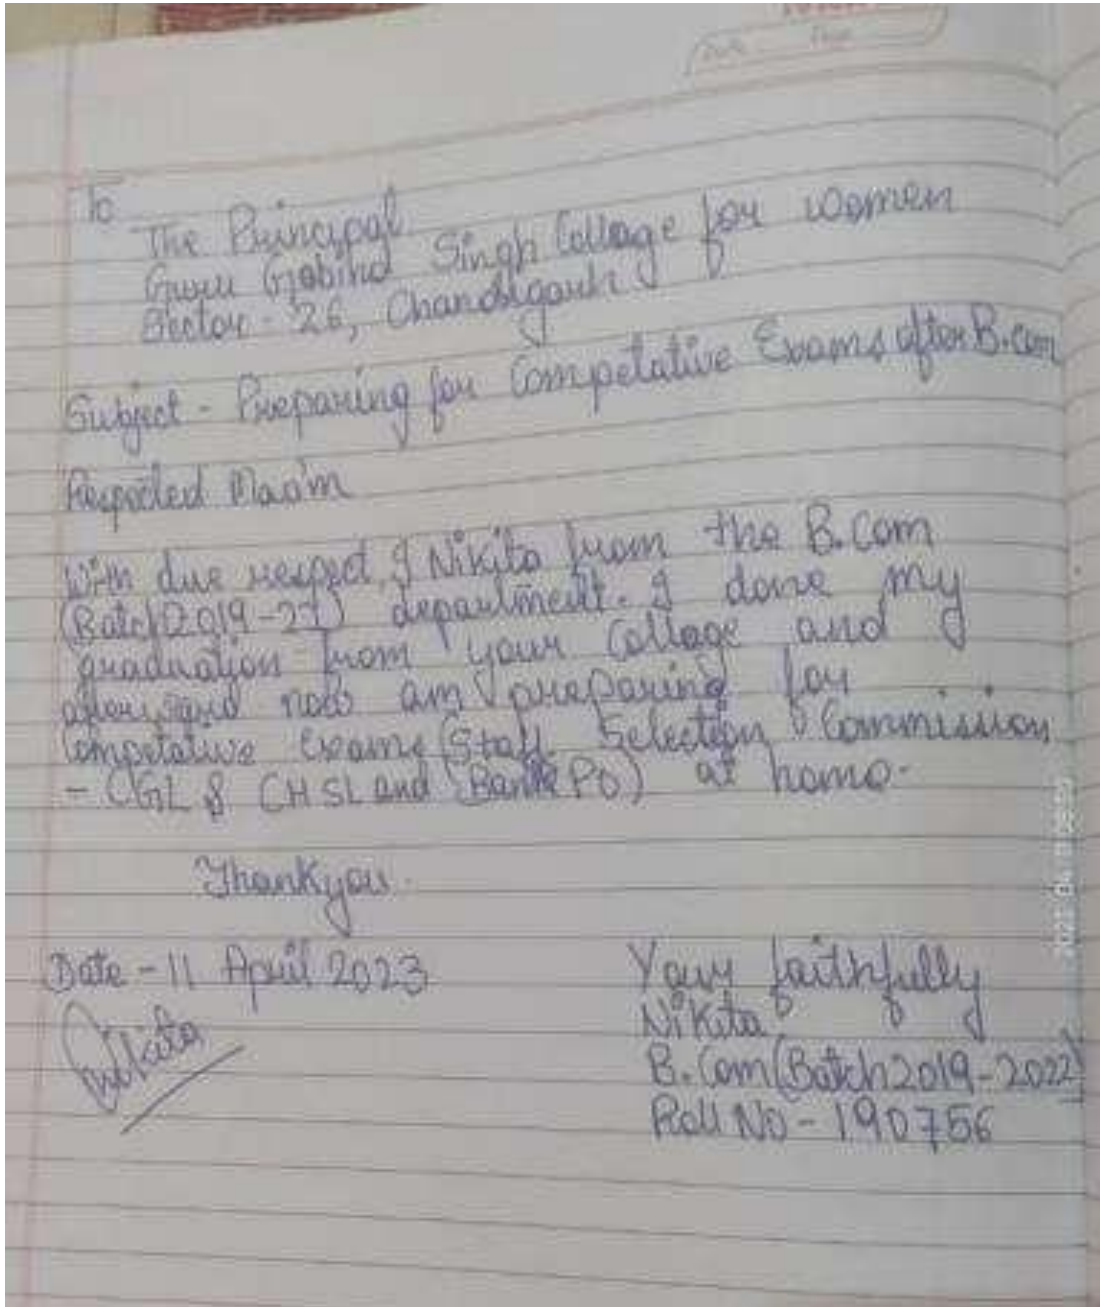 To
The Principal
Guru Gobind Singh Collage for women
Sector - 26, Chandigarh
Subject - Preparing for Competative Exams after B.com
Respected Maa'm
With due respect, I Nikita from the B.Com
(Batch 2019-22) department. I done my
graduation from your Collage and
afterward now am preparing for
Competative Exams (Staff Selection Commission
- CGL & CHSL and Bank PO) at home.
Thankyou.
Date - 11 April 2023
Yours faithfully
Nikita
Nikita
B.Com (Batch 2019-2022)
Roll No - 190756